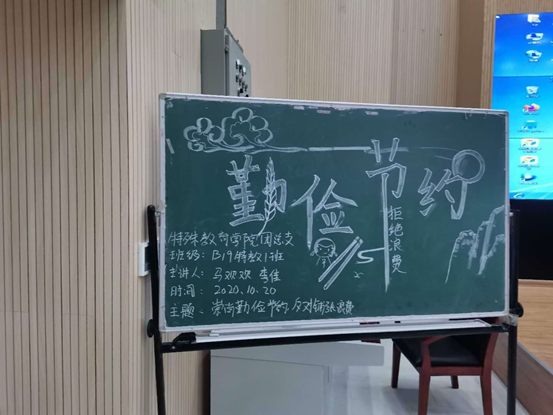 勤俭节约
拒绝浪费
特殊教育学院团总支
班级：B19特教1班
主讲人：马欢欢 李佳
时间：2020.10.20
主题：崇尚勤俭节约，反对铺张浪费